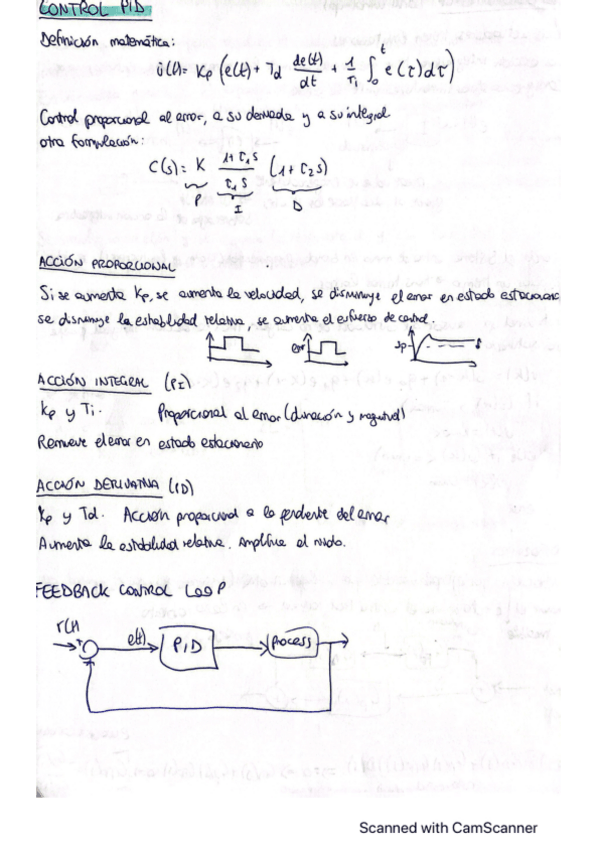 CONTROL PID
Definición matemática:
u(t) = Kp (e(t) + Td de(t)/dt + 1/Ti ∫₀ᵗ e(τ)dτ)
Control proporcional al error, a su derivada y a su integral
otra formulación:
C(s) = K (1+τ₁s)/(τ₁s) (1+τ₂s)
P I D
ACCIÓN PROPORCIONAL
Si se aumenta Kp, se aumenta la velocidad, se disminuye el error en estado estacionario
se disminuye la estabilidad relativa, se aumenta el esfuerzo de control.
ACCIÓN INTEGRAL (PI)
Kp y Ti. Proporcional al error (duración y magnitud)
Remueve el error en estado estacionario
ACCIÓN DERIVATIVA (PD)
Kp y Td. Acción proporcional a la pendiente del error
Aumenta la estabilidad relativa. Amplifica el ruido.
FEEDBACK CONTROL LOOP
r(t) e(t) PID Process
Scanned with CamScanner